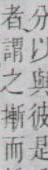 分以與彼是
者謂之撕而